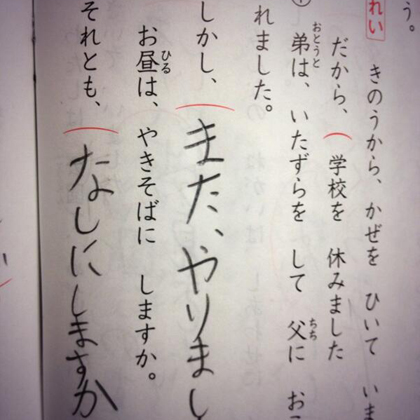 う。
れい
きのうから、かぜを ひいて いま
だから、(学校を 休みました
弟は、いたずらを して 父に お
おとうと
ちち
れました。
しかし、(また、やりまし
お昼は、やきそばに しますか。
ひる
それとも、(なしにしますか